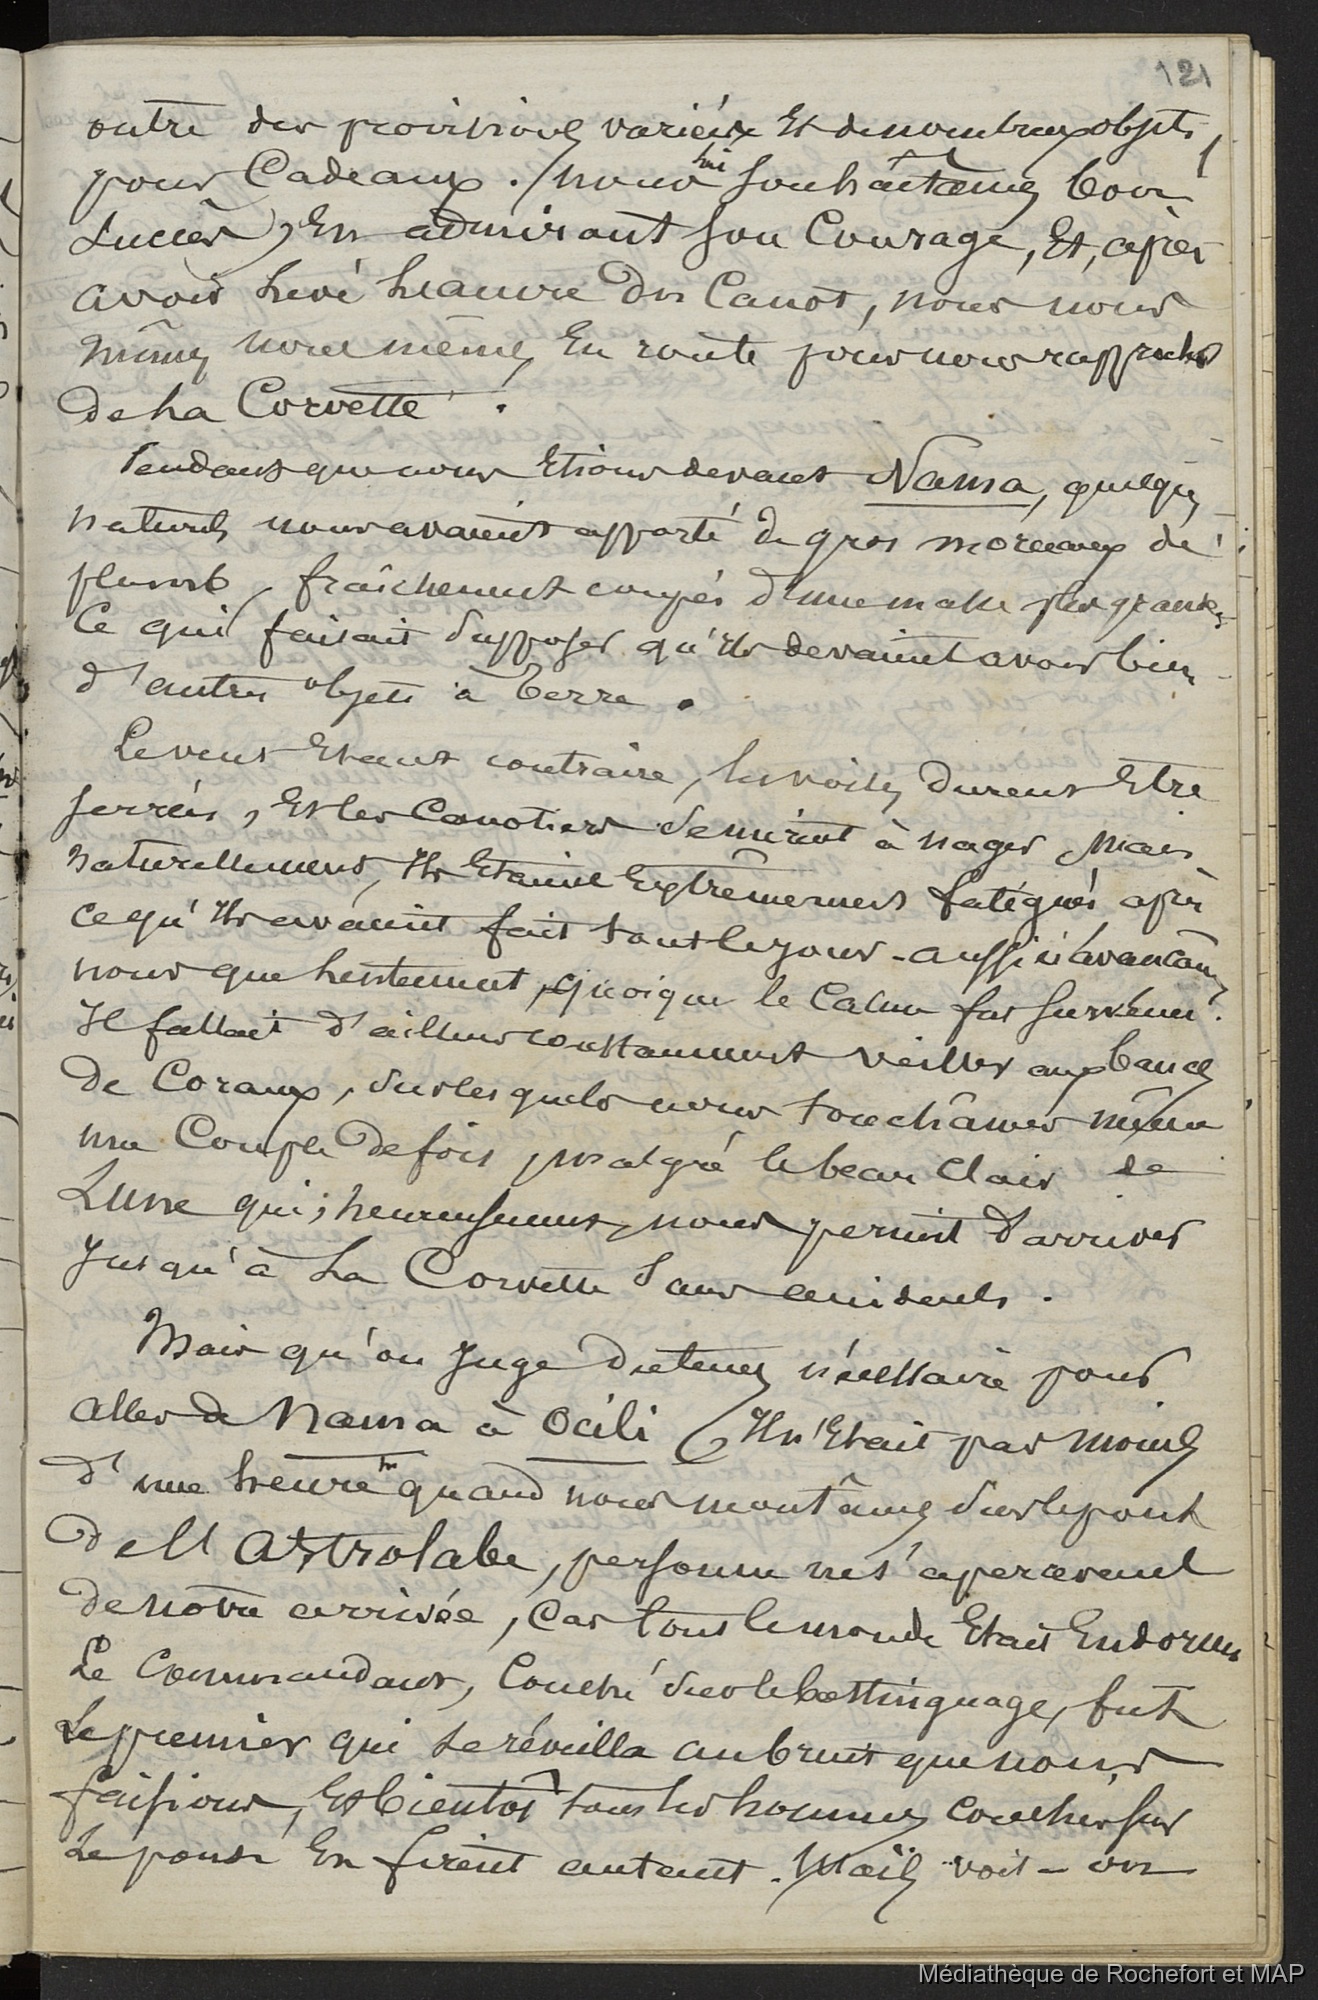 121
outre des provisions variées Et de nombreux objets
pour Cadeaux. Nous lui souhaitâmes bon
succès, En admirant son Courage, Et, après
avoir hélé le autre Canot, nous nous
mîmes nous mêmes En route pour nous rapprocher
de la Corvette.
Pendant que nous Etions devant Nama, quelques
naturels nous avaient apporté de gros morceaux de
plomb, fraîchement coupés d'une masse plus grande,
Ce qui faisait supposer qu'Ils devaient avoir bien
d'autres objets à terre.
Le vent Etant contraire, les voiles durent Etre
serrées, Et les Canotiers se mirent à nager. Mais
naturellement, Ils Etaient Extrêmement fatigués après
ce qu'Ils avaient fait tout le jour - aussi n'avançâmes
nous que lentement, quoique le Calme fut survenu.
Il fallait d'ailleurs constamment veiller aux bancs
de Coraux, sur lesquels nous touchâmes même
une Couple de fois, malgré le beau Clair de
Lune qui, heureusement, nous permit d'arriver
Jusqu'à La Corvette sans accidents.
Mais qu'on Juge du temps nécessaire pour
aller de Nama à Ocili. Il n'Etait pas moins
d'une heure quand nous montâmes sur le pont
de l'Astrolabe, personne ne s'apercevant
de notre arrivée, Car tout le monde Etait Endormi
Le Commandant, Couché sur le bastinguage, fut
Le premier qui se réveilla au bruit que nous
faisions, Et bientôt tous les hommes couchés sur
Le pont En firent autant. Mais voit-on
Médiathèque de Rochefort et MAP